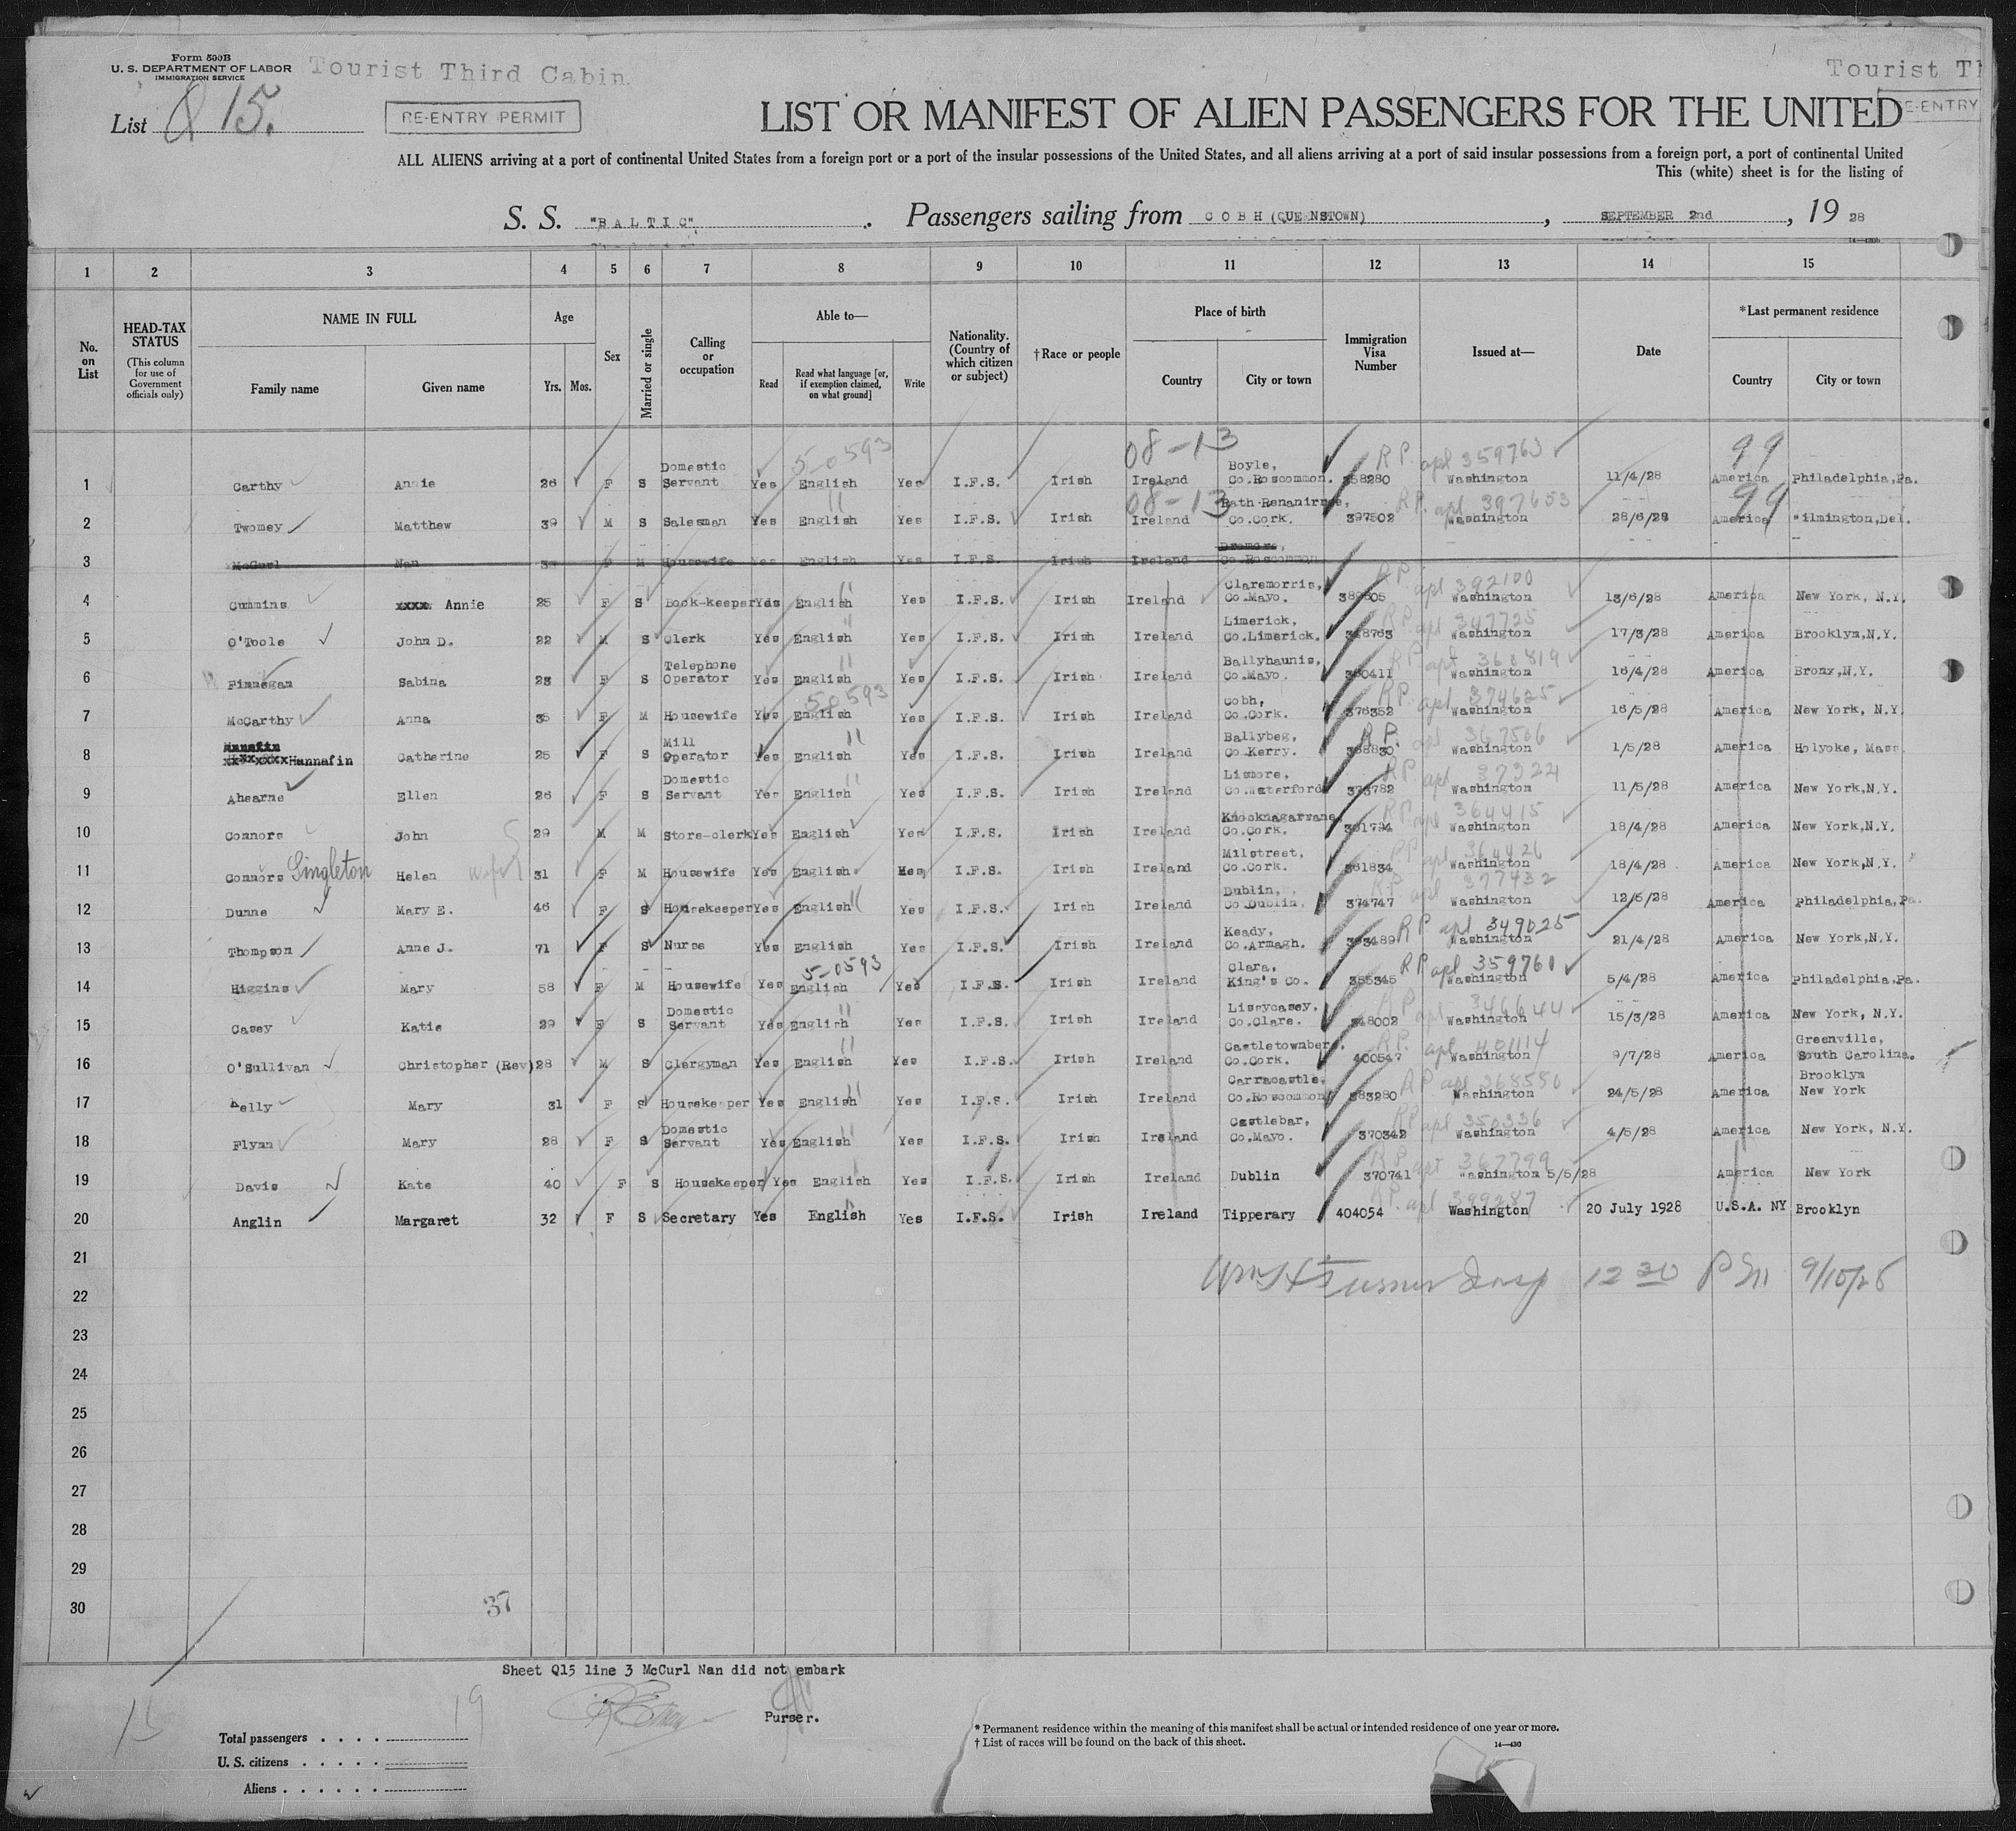 Form 500B
U. S. DEPARTMENT OF LABOR
IMMIGRATION SERVICE
Tourist Third Cabin.
Tourist Th
List Q 15.
RE-ENTRY PERMIT
E-ENTRY
LIST OR MANIFEST OF ALIEN PASSENGERS FOR THE UNITED
ALL ALIENS arriving at a port of continental United States from a foreign port or a port of the insular possessions of the United States, and all aliens arriving at a port of said insular possessions from a foreign port, a port of continental United
This (white) sheet is for the listing of
S. S. "BALTIC". Passengers sailing from COBH (QUEENSTOWN), SEPTEMBER 2nd, 19 28
1 2 3 4 5 6 7 8 9 10 11 12 13 14 15
No. on List
HEAD-TAX STATUS
(This column for use of Government officials only)
NAME IN FULL
Family name Given name
Age
Yrs. Mos.
Sex
Married or single
Calling or occupation
Able to—
Read Read what language [or, if exemption claimed, on what ground] Write
Nationality. (Country of which citizen or subject)
†Race or people
Place of birth
Country City or town
Immigration Visa Number
Issued at—
Date
*Last permanent residence
Country City or town
5-0593 08-13 RP apl 359763 99
1 Carthy Annie 26 F S Domestic Servant Yes English Yes I.F.S. Irish Ireland Boyle, Co.Roscommon. 358280 Washington 11/4/28 America Philadelphia,Pa.
08-13 RP. apl 397653 99
2 Twomey Matthew 39 M S Salesman Yes English Yes I.F.S. Irish Ireland Rath Co.Cork. 397502 Washington 28/6/28 America ilmington,Del.
3 McCurl Nan F M Housewife Yes English Yes I.F.S. Irish Ireland Dromore, Co.Roscommon
RP apl 392100
4 Cummins xxxx Annie 25 F S Book-keeper Yes English Yes I.F.S. Irish Ireland Claremorris, Co.Mayo. Washington 13/6/28 America New York, N.Y.
RP apl 347725
5 O'Toole John D. 22 M S Clerk Yes English Yes I.F.S. Irish Ireland Limerick, Co.Limerick. 348763 Washington 17/3/28 America Brooklyn,N.Y.
RP apl 360819
6 Finnegan Sabina 23 F S Telephone Operator Yes English Yes I.F.S. Irish Ireland Ballyhaunis, Co.Mayo. 360411 Washington 16/4/28 America Bronx,N.Y.
50593 RP. apl 374625
7 McCarthy Anna 35 F M Housewife Yes English Yes I.F.S. Irish Ireland Cobh, Co.Cork. 376352 Washington 16/5/28 America New York, N.Y.
RP. apl 367506
8 Hannafin Catherine 25 F S Mill Operator Yes English Yes I.F.S. Irish Ireland Ballybeg, Co.Kerry. 368830 Washington 1/5/28 America Holyoke, Mass.
RP. apl 37322
9 Ahearne Ellen 26 F S Domestic Servant Yes English Yes I.F.S. Irish Ireland Lismore, Co.Waterford 373782 Washington 11/5/28 America New York,N.Y.
RP. apl 364415
10 Connors John 29 M M Store-clerk Yes English Yes I.F.S. Irish Ireland Knocknagarvane, Co.Cork. 361794 Washington 18/4/28 America New York,N.Y.
RP 364426
11 Connors Singleton Helen wife 31 F M Housewife Yes English Yes I.F.S. Irish Ireland Milstreet, Co.Cork. 361834 Washington 18/4/28 America New York,N.Y.
RP apl 377432
12 Dunne Mary E. 46 F S Housekeeper Yes English Yes I.F.S. Irish Ireland Dublin, Co.Dublin. 374747 Washington 12/5/28 America Philadelphia,Pa.
RP apl 349025
13 Thompson Anne J. 71 F S Nurse Yes English Yes I.F.S. Irish Ireland Keady, Co.Armagh. 363489 Washington 21/4/28 America New York,N.Y.
5-0593 RP apl 359761
14 Higgins Mary 58 F M Housewife Yes English Yes I.F.S. Irish Ireland Clara, King's Co. 355345 Washington 5/4/28 America Philadelphia,Pa.
RP apl 346644
15 Casey Katie 29 F S Domestic Servant Yes English Yes I.F.S. Irish Ireland Lissycasey, Co.Clare. 348002 Washington 15/3/28 America New York, N.Y.
RP. apl 401114
16 O'Sullivan Christopher (Rev) 28 M S Clergyman Yes English Yes I.F.S. Irish Ireland Castletownbere, Co.Cork. 400547 Washington 9/7/28 America Greenville, South Carolina.
RP apl 368580
17 Kelly Mary 31 F S Housekeeper Yes English Yes I.F.S. Irish Ireland Carracastle, Co.Roscommon 383280 Washington 24/5/28 America Brooklyn New York
RP apl 350336
18 Flynn Mary 28 F S Domestic Servant Yes English Yes I.F.S. Irish Ireland Castlebar, Co.Mayo. 370342 Washington 4/5/28 America New York, N.Y.
RP apl 367799
19 Davis Kate 40 F S Housekeeper Yes English Yes I.F.S. Irish Ireland Dublin 370741 Washington 5/5/28 America New York
RP. apl 399287
20 Anglin Margaret 32 F S Secretary Yes English Yes I.F.S. Irish Ireland Tipperary 404054 Washington 20 July 1928 U.S.A. NY Brooklyn
21
Wm H Turner Insp 12 30 PM 9/10/28
22
23
24
25
26
27
28
29
30
37
Sheet Q15 line 3 McCurl Nan did not embark
Purser.
15
19
Total passengers
U. S. citizens
Aliens
* Permanent residence within the meaning of this manifest shall be actual or intended residence of one year or more.
† List of races will be found on the back of this sheet.
14—430